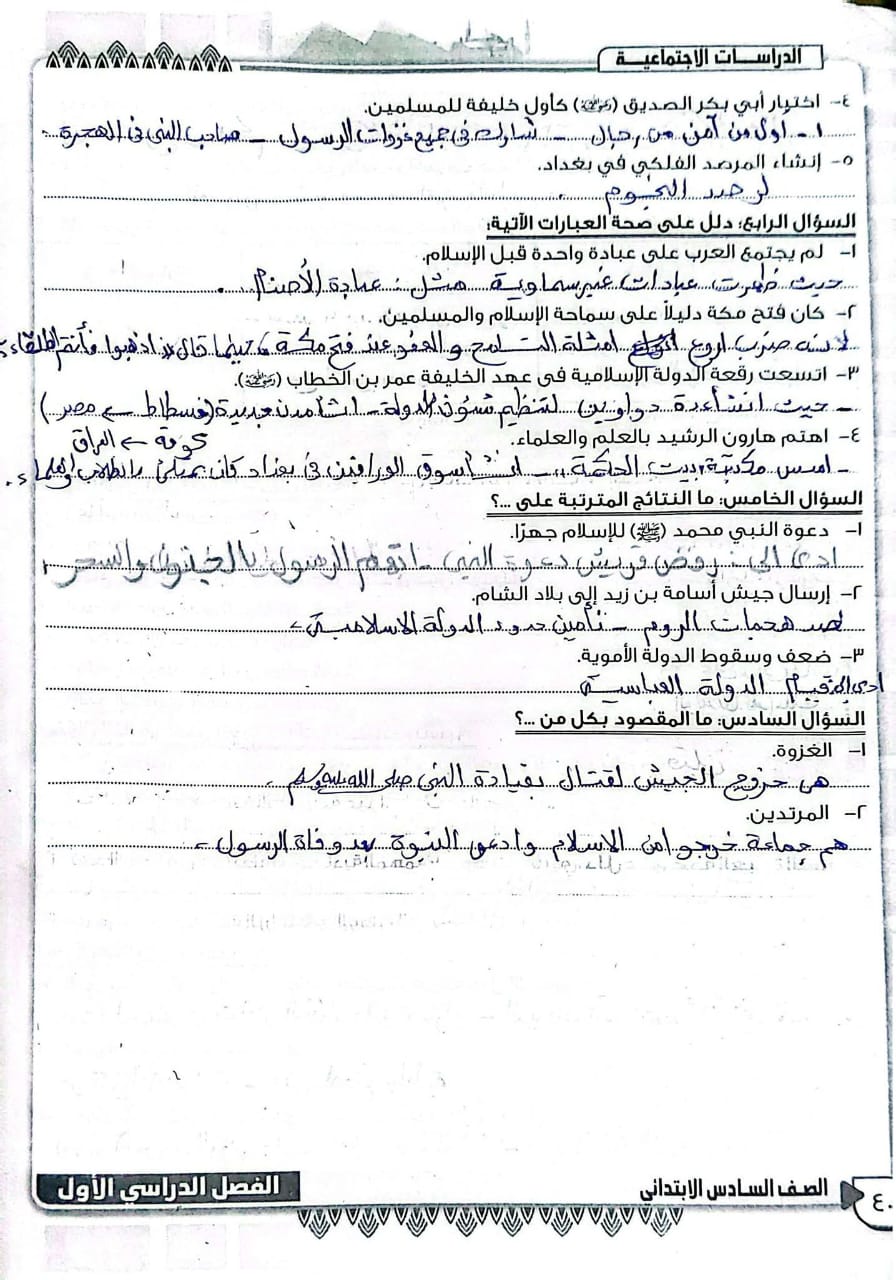 الدراسات الاجتماعية
٤- اختيار أبي بكر الصديق (رضي الله عنه) كأول خليفة للمسلمين.
١- أول من آمن من رجال - شارك في جميع غزوات الرسول - صاحب النبي في الهجرة
٥- إنشاء المرصد الفلكي في بغداد.
لرصد النجوم
السؤال الرابع: دلل على صحة العبارات الآتية:
١- لم يجتمع العرب على عبادة واحدة قبل الإسلام.
حيث ظهرت عبادات غير سماوية مثل: عبادة الأصنام.
٢- كان فتح مكة دليلاً على سماحة الإسلام والمسلمين.
لانه ضرب اروع امثلة التسامح و العفو عند فتح مكة حينما قال اذهبوا فأنتم الطلقاء
٣- اتسعت رقعة الدولة الإسلامية في عهد الخليفة عمر بن الخطاب (رضي الله عنه).
- حيث انشاء دواوين لتنظيم شئون الدولة - انشأ مدن جديدة (فسطاط ← مصر)
كوفة ← العراق
٤- اهتم هارون الرشيد بالعلم والعلماء.
- اسس مكتبة بيت الحكمة - انشأ سوق الوراقين في بغداد كان يمتلئ بالطلاب والعلماء.
السؤال الخامس: ما النتائج المترتبة على ...؟
١- دعوة النبي محمد (ﷺ) للإسلام جهرًا.
ادى الى: رفض قريش دعوة النبي - اتهم الرسول بالجنون والسحر
٢- إرسال جيش أسامة بن زيد إلى بلاد الشام.
لصد هجمات الروم - تأمين حدود الدولة الاسلامية
٣- ضعف وسقوط الدولة الأموية.
ادى الى قيام الدولة العباسية
السؤال السادس: ما المقصود بكل من ...؟
١- الغزوة.
هى خروج الجيش لقتال بقيادة النبى صلى الله عليه وسلم
٢- المرتدين.
هم جماعة خرجو من الاسلام وادعى النبوة بعد وفاة الرسول
٤٠
الصف السادس الابتدائي
الفصل الدراسي الأول